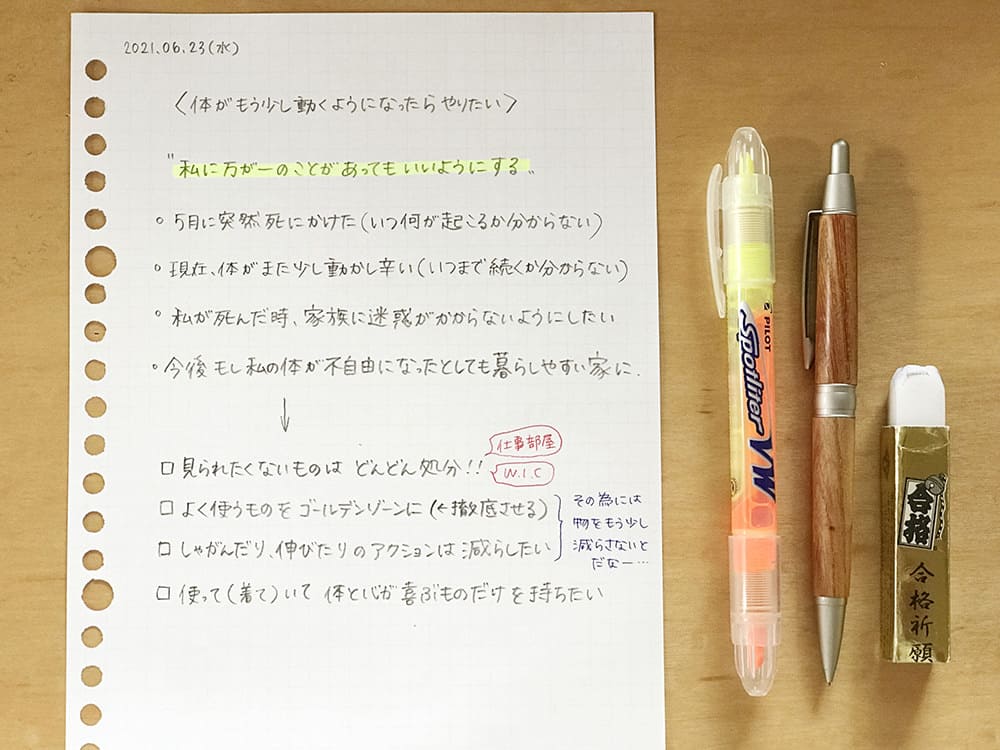 2021.06.23(水)
〈体がもう少し動くようになったらやりたい〉
"私に万が一のことがあってもいいようにする„
• 5月に突然死にかけた(いつ何が起こるか分からない)
• 現在、体がまだ少し動かし辛い(いつまで続くか分からない)
• 私が死んだ時、家族に迷惑がかからないようにしたい
• 今後もし私の体が不自由になったとしても暮らしやすい家に.
↓
仕事部屋
□ 見られたくないものは どんどん処分!!
W.I.C
□ よく使うものをゴールデンゾーンに(←撤底させる)
□ しゃがんだり、伸びたりのアクションは減らしたい
その為には
物をもう少し
減らさないと
だなー…
□ 使って(着て)いて 体と心が喜ぶものだけを持ちたい
PILOT
Spotliter VW
合格
合格祈願